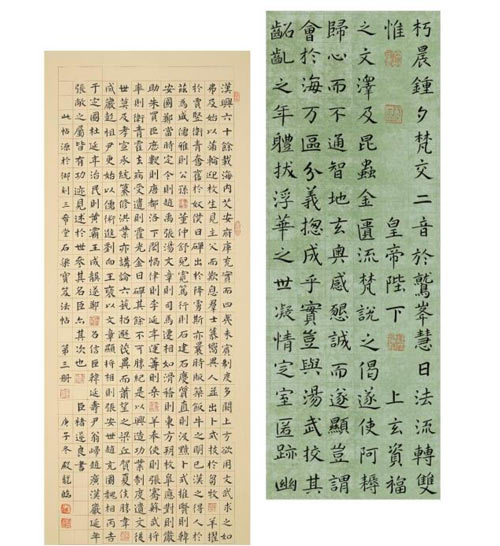 朽晨鐘夕梵交二音於鷲峯慧日法流轉雙
惟 皇帝陛下 上玄資福
之文澤及昆蟲金匱流梵說之偈遂使阿耨
歸心而不通智地玄奧感懇誠而遂顯豈謂
會於海万區分義揔成乎實豈與湯武挍其
齠齔之年體拔浮華之世凝情定室匿跡幽
漢興六十餘載海內艾安府庫充實而四夷未賓制度多闕上方欲用文武求之如
弗及始以蒲輪迎枚生見主父而歎息異人並出卜式拔於芻牧羊擢
於賈豎衛青奮於奴僕日磾出於降虜斯亦曩時版築飯牛之朋已漢之得人於
茲為盛儒雅則公孫董仲舒兒寬篤行則石建石慶質直則汲黯卜式推賢則韓
安國鄭當時定令則趙禹張湯文章則司馬遷相如滑稽則東方朔枚皋應對則嚴
助朱買臣歷數則唐都洛下閎協律則李延年運籌則桑羊奉使則張騫蘇武將
率則衛青霍去病受遺則霍光金日磾其餘不可勝紀是以興造功業制度遺文後
世莫及孝宣承統纂修洪業亦講論六藝招選茂異而蕭望之梁丘賀夏侯勝韋
成嚴彭祖尹更始以儒術進劉向王襃以文章顯將相則張安世趙充國魏相丙吉
于定國杜延年治民則黃霸王成龔遂鄭召信臣韓延壽尹翁歸趙廣漢嚴延年
張敞之屬皆有功迹見述於世參其名臣亦其次也 臣褚遂良書
此帖源於御刻三希堂石渠寶笈法帖 第三冊 庚子冬殿龍臨